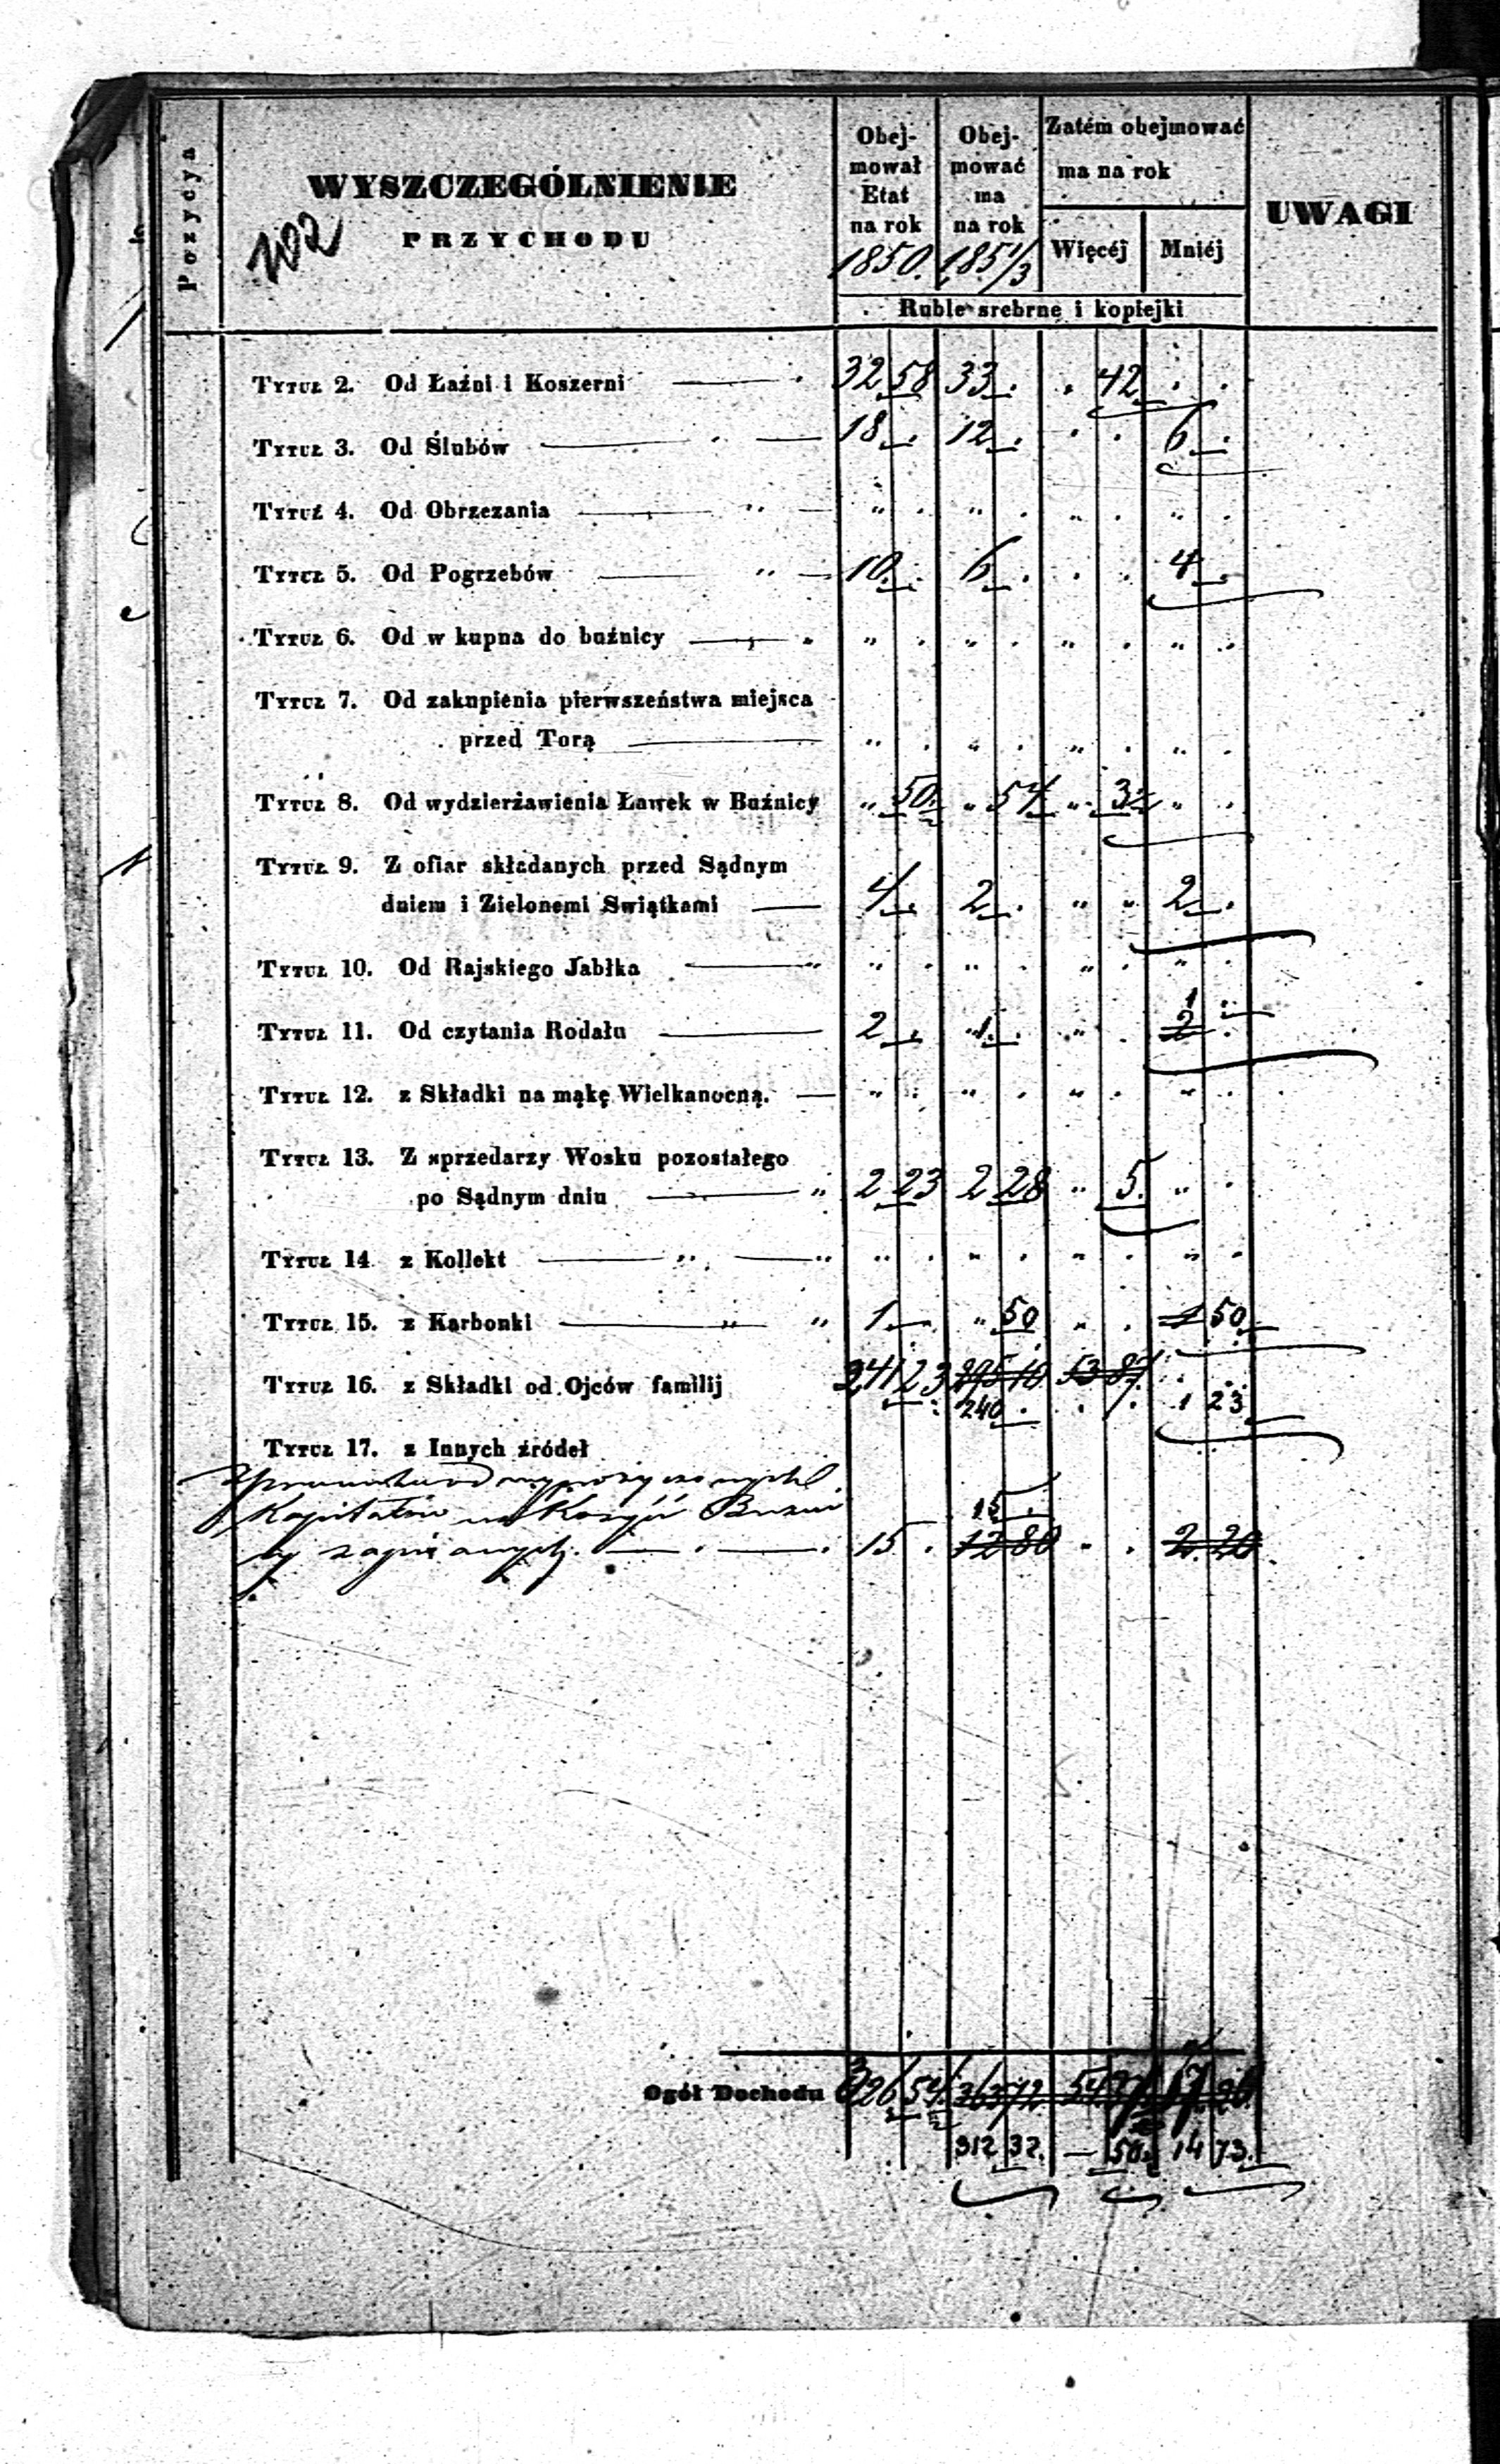 Pozycya
WYSZCZEGÓLNIENIE
PRZYCHODU
202
Obej-
mował
Etat
na rok
1850.
Obej-
mować
ma
na rok
1851/3
Zatém obejmować
ma na rok
Więcéj
Mniéj
Ruble srebrne i kopiejki
UWAGI
Tytuł 2. Od Łaźni i Koszerni 32 58 33 . . 42 . .
Tytuł 3. Od Ślubów 18 . 12 . . . 6 .
Tytuł 4. Od Obrzezania " . " . " . " .
Tytuł 5. Od Pogrzebów 10 . 6 . . . 4 .
Tytuł 6. Od w kupna do buźnicy " . " . " . " .
Tytuł 7. Od zakupienia pierwszeństwa miejsca
przed Torą " . " . " . " .
Tytuł 8. Od wydzierżawienia Ławek w Buźnicy " 50 " 54 " " .
Tytuł 9. Z ofiar składanych przed Sądnym
dniem i Zielonemi Swiątkami 4 . 2 . " " 2 .
Tytuł 10. Od Rajskiego Jabłka " . " . " . " .
Tytuł 11. Od czytania Rodału 2 . 1 . " . 2 1
Tytuł 12. z Składki na mąkę Wielkanocną. " . " . " . " .
Tytuł 13. Z sprzedarzy Wosku pozostałego
po Sądnym dniu 2 23 2 28 " 5 " .
Tytuł 14 z Kollekt " . " . " . " .
Tytuł 15. z Karbonki 1 " 50 " . 50
Tytuł 16. z Składki od Ojców familij 241 23 295 10 53 87 . .
240 . . . 1 23
Tytuł 17. z Innych źródeł
wypożyczonych
Kapitałów na Korzyść Buźni
cy zapisanych. 15 . 15 . 12 80 . . 2 20
Ogół Dochodu 326 54 363 12 54 17
312 32. — 50 14 73.